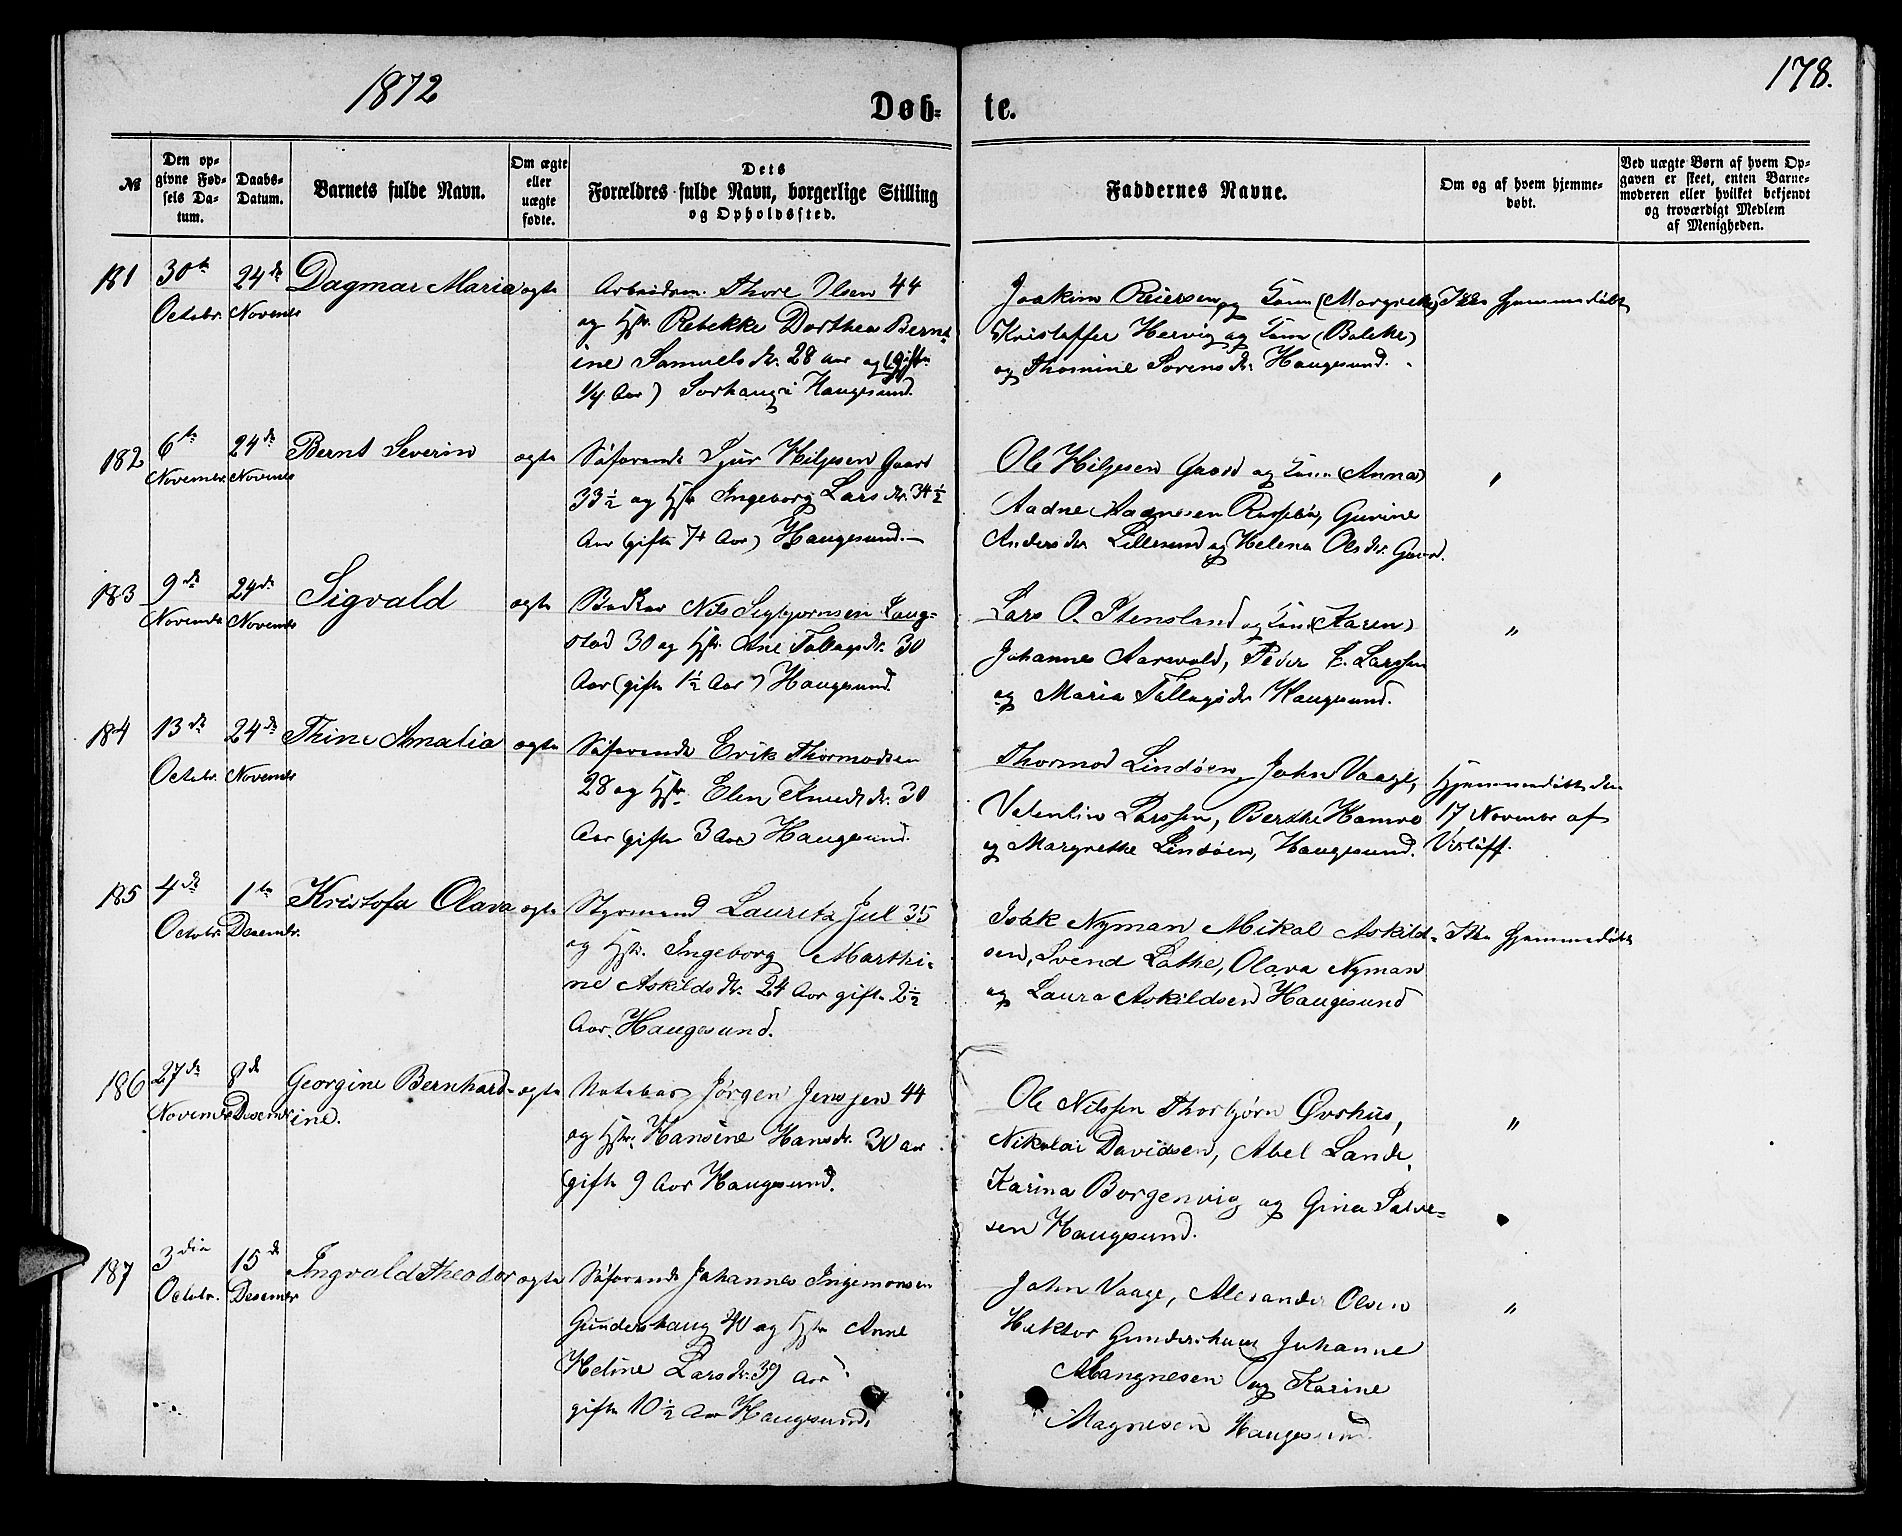 1872
178.
Døb-
te.
№
Den op-
givne Fød-
sels Da-
tum.
Daabs-
Datum.
Barnets fulde Navn.
Om ægte
eller
uægte
fødte.
Dets
Forældres fulde Navn, borgerlige Stilling
og Opholdssted.
Faddernes Navne.
Om og af hvem hjemme-
døbt.
Ved uægte Børn af hvem Op-
gaven er skeet, enten Barne-
moderen eller hvilket bekjendt
og troværdigt Medlem
af Menigheden.
181
30te
Octobr.
24de
Novembr
Dagmar Maria
ægte
Arbeidsm. Thore Olsen 44
og Hstr. Rebekke Dorthea Bernt-
ine Samuelsdr. 28 Aar og (gifte
1/4 Aar) Sorhaug i Haugesund.
Joakim Reiersen og Kone (Margrethe)
Kristoffer Hervig og Kone (Bolette)
og Thomine Sorensdr Haugesund.
Ikke hjemmedøbt
182
6te
Novembr.
24de
Novembr
Bernt Severin
ægte
Søfarende Sjur Kiljesen Gaard
33½ og Hstr Ingeborg Larsdr. 34½
Aar (gifte 7+ Aar) Haugesund.
Ole Kiljesen Gaard og Kone (Anna)
Aadne Aadnesen Gurine
Andersdr. Lillesund og Helene Olsdr. Gaard.
"
183
9de
Novembr
24de
Novembr
Sigvald
ægte
Bødker Nils Sigbjørnsen Laug-
stad 30 og Hstr. Ane Tollagsdr. 30
Aar (gifte 1½ Aar) Haugesund.
Lars O. Stensland og Kone (Karen)
Johannes Aarevold, Peder L. Larssen
og Maria Tollagsdr Haugesund.
"
184
13de
Octobr.
24de
Novembr
Thine Amalia
ægte
Søfarende Erik Thormodsen
28 og Hstr. Elen Knudsdr. 30
Aar (gifte 3 Aar Haugesund.
Thormod Lindøen, John Vaage,
Valentin Larssen, Berthe Hamre
og Margrethe Lindøen, Haugesund.
Hjemmedøbt den
17 Novembr af
185
4de
Octobr.
1te
Desembr.
Kristofa Olava
ægte
Styrmand Lauritz Jul 35
og Hstr. Ingeborg Marthi-
ne Askildsdr. 24 Aar gifte 2½
Aar. Haugesund.
Isak Nyman Mikal Askild-
sen, Svend Lothe, Olava Nyman
og Laura Askildsen Haugesund
Ikke hjemmedøbt
186
27de
Novembr
8de
Desembr
Georgine Bernhard-
ine.
ægte
Notebas Jørgen Jenssen 44
og Hstr. Hansine Hansdr. 30 aar
(gifte 9 Aar Haugesund.
Ole Nilssen Thorbjørn Øvrhus,
Nikolai Davidsen, Abel Lande,
Karina Borgenvig og Gina Salve-
sen Haugesund.
"
187
3die
Octobr.
15de
Desembr
Ingvald Theodor
ægte
Søfarende Johannes Ingemonsen
Gundershaug 40 og Hstr Anne
Heline Larsdr. 39 Aar
gifte 10½ Aar Haugesund.
John Vaage, Alexander Olsen
Hektor Gundershaug Johanne
Mangnesen og Karine
Magnesen Haugesund.
"